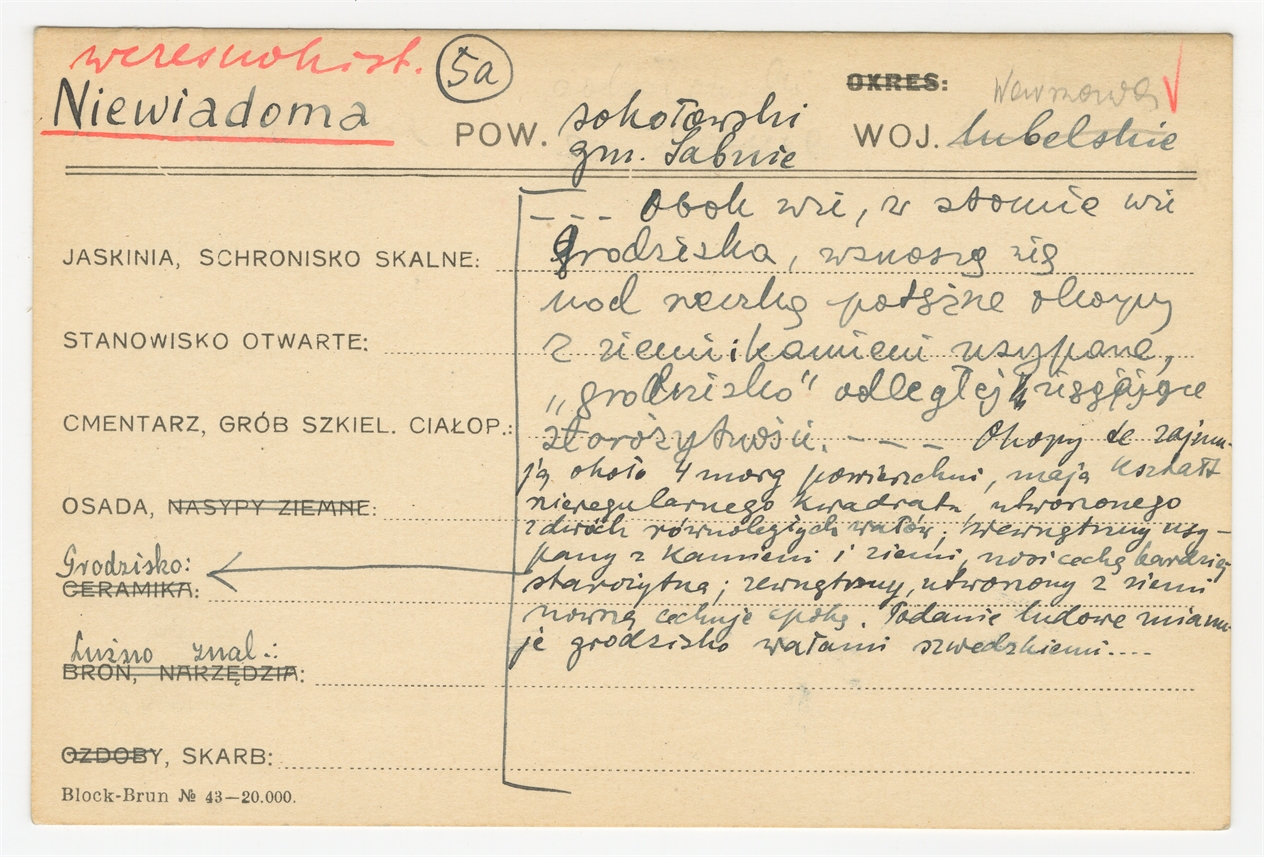 wczesnohist. 5a
Niewiadoma
POW. sokołowski
gm. Sabnie
OKRES:
Warszawa
WOJ. lubelskie
--- Obok wsi, w stronie wsi
JASKINIA, SCHRONISKO SKALNE: Grodziska, wznoszą się
nad rzeczką potężne okopy
STANOWISKO OTWARTE: z ziemi i kamieni usypane,
„grodzisko" odległej sięgające
CMENTARZ, GRÓB SZKIEL. CIAŁOP.: starożytności. --- Okopy te zajmu-
ją około 4 morg powierzchni, mają kształt
OSADA, NASYPY ZIEMNE: nieregularnego kwadratu, utworzonego
z dwóch równoległych wałów; wewnętrzny usy-
pany z kamieni i ziemi, nosi cechę bardziej
Grodzisko:
CERAMIKA: starożytną; zewnętrzny, utworzony z ziemi
nowszą cechuje epokę. Podanie ludowe mianu-
je grodzisko wałami szwedzkiemi....
Luźno znal.:
BROŃ, NARZĘDZIA:
OZDOBY, SKARB:
Block-Brun № 43—20.000.